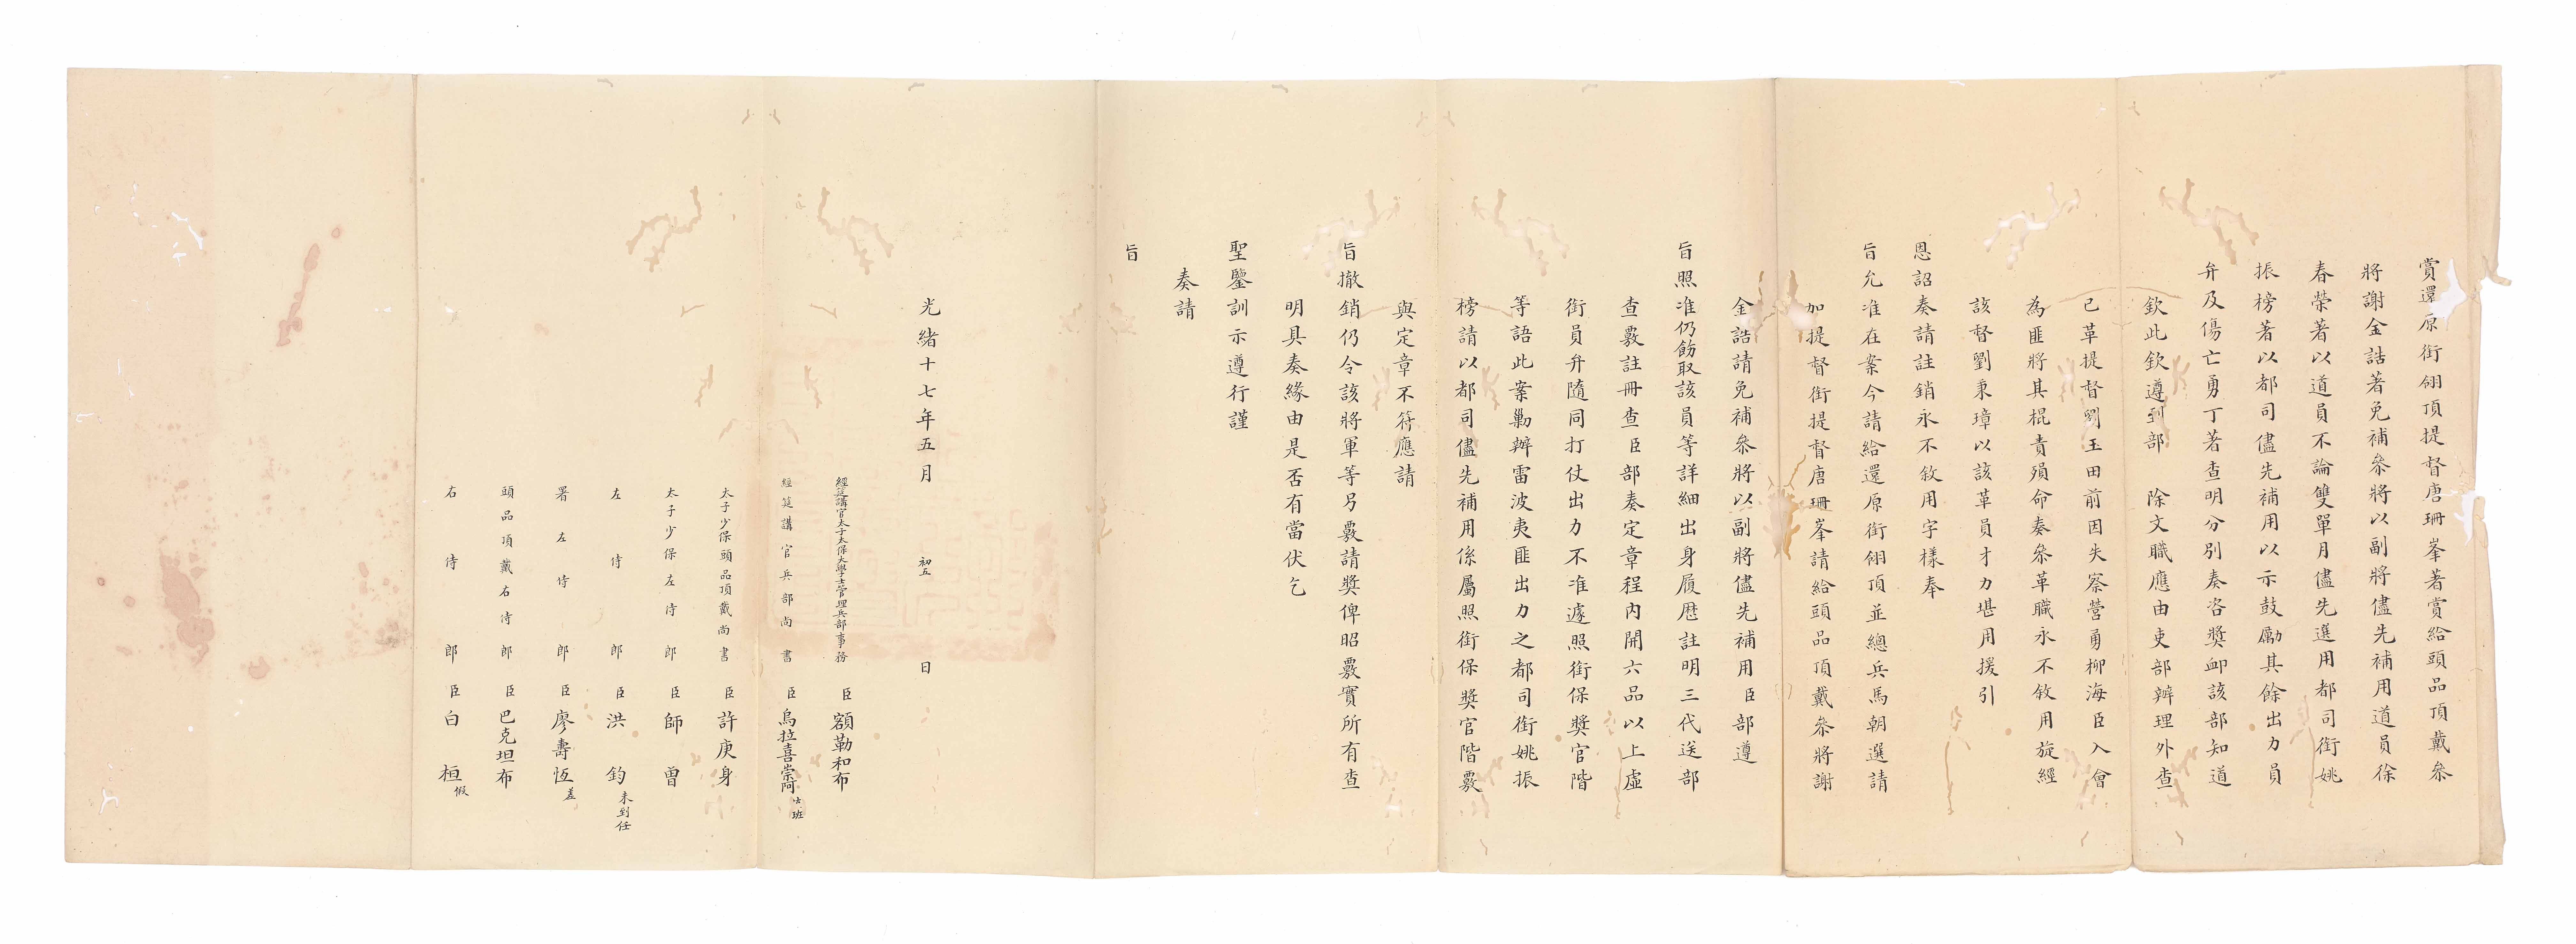 賞還原銜翎頂提督唐珊峯著賞給頭品頂戴叅
將謝金誥著免補叅將以副將儘先補用道員徐
春榮著以道員不論雙單月儘先選用都司銜姚
振榜著以都司儘先補用以示鼓勵其餘出力員
弁及傷亡勇丁著查明分別奏咨獎卹該部知道
欽此欽遵到部 除文職應由吏部辦理外查
已革提督劉玉田前因失察營勇柳海臣入會
為匪將其棍責殞命奏叅革職永不敘用旋經
該督劉秉璋以該革員才力堪用援引
恩詔奏請註銷永不敘用字樣奉
旨允准在案今請給還原銜翎頂並總兵馬朝選請
加提督銜提督唐珊峯請給頭品頂戴叅將謝
金誥請免補叅將以副將儘先補用臣部遵
旨照准仍飭取該員等詳細出身履歷註明三代送部
查覈註冊查臣部奏定章程內開六品以上虛
銜員弁隨同打仗出力不准遽照銜保獎官階
等語此案勦辦雷波夷匪出力之都司銜姚振
榜請以都司儘先補用係屬照銜保獎官階覈
與定章不符應請
旨撤銷仍令該將軍等另覈請獎俾昭覈實所有查
明具奏緣由是否有當伏乞
聖鑒訓示遵行謹
奏請
旨
光緒十七年五月 初五 日
經筵講官太子太保大學士管理兵部事務 臣 額勒和布
經筵講官兵部尚書 臣 烏拉喜崇阿 班
太子少保頭品頂戴尚書 臣 許庚身
太子少保左侍郎 臣 師曾
左侍郎 臣 洪鈞 未到任
署左侍郎 臣 廖壽恆 差
頭品頂戴右侍郎 臣 巴克坦布
右侍郎 臣 白桓 假